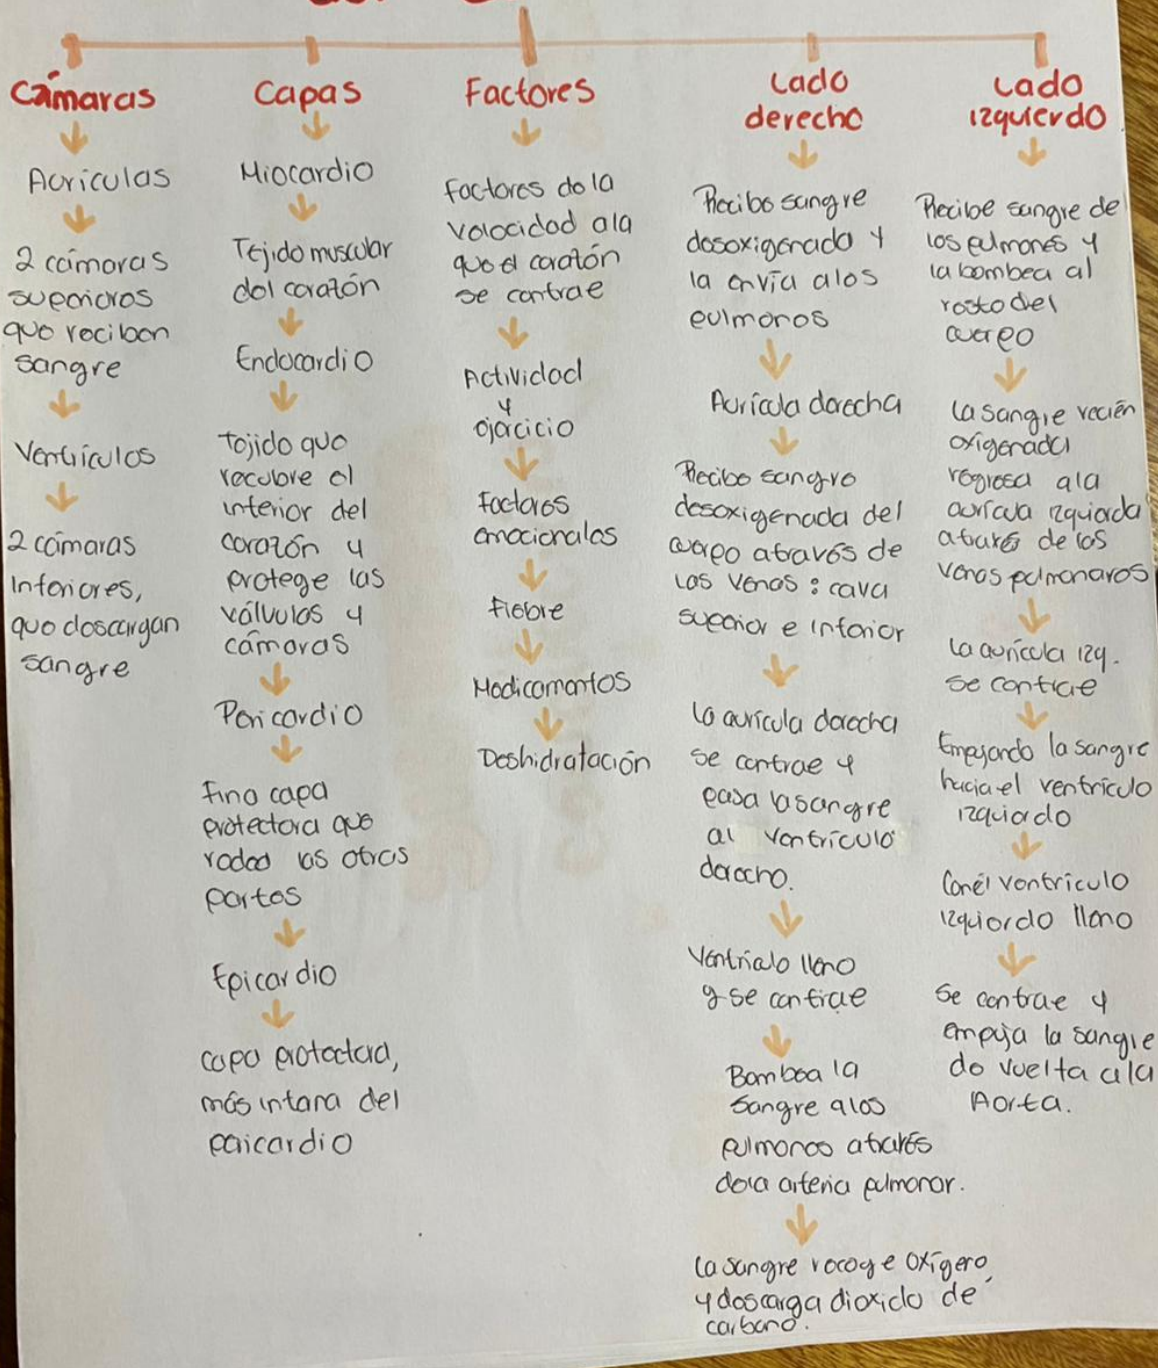 Cámaras
Aurículas
2 cámaras
superiores
que reciben
sangre
Ventrículos
2 cámaras
Inferiores,
que descargan
sangre
Capas
Miocardio
Tejido muscular
del corazón
Endocardio
tejido que
recubre el
interior del
corazón y
protege las
válvulas y
cámaras
Pericardio
Fina capa
protectora que
rodea las otras
partes
Epicardio
capa protectora,
más interna del
pericardio
Factores
Factores de la
velocidad a la
que el corazón
se contrae
Actividad
y
ejercicio
Factores
emocionales
Fiebre
Medicamentos
Deshidratación
Lado
derecho
Recibe sangre
desoxigenada y
la envía a los
pulmones
Aurícula derecha
Recibe sangre
desoxigenada del
cuerpo através de
las venas: cava
superior e inferior
la aurícula derecha
se contrae y
pasa la sangre
al ventrículo
derecho.
Ventrículo lleno
y se contrae
Bombea la
sangre a los
pulmones através
de la arteria pulmonar.
la sangre recoge oxígeno,
y descarga dioxido de
carbono.
Lado
izquierdo
Recibe sangre de
los pulmones y
la bombea al
resto del
cuerpo
la sangre recién
oxigenada
regresa a la
aurícula izquierda
através de las
venas pulmonares
la aurícula izq.
se contrae
Empujando la sangre
hacia el ventrículo
izquierdo
Con el ventrículo
izquierdo lleno
se contrae y
empuja la sangre
de vuelta a la
Aorta.